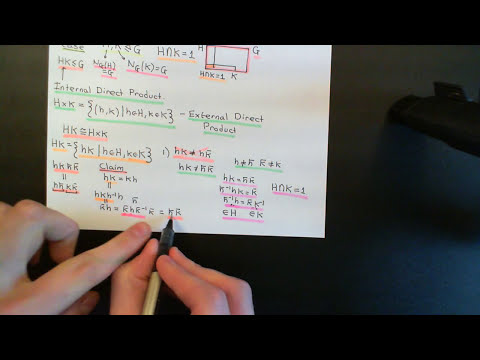 Case H, K ⊴ G H∩K=1 H G
HK≤G N_G(H)=G N_G(K)=G H∩K=1 K
Internal Direct Product
H×K = {(h,k) | h∈H, k∈K} - External Direct Product
HK ≅ H×K
HK = {hk | h∈H, k∈K} 1) hk ≠ h̄k̄ h≠h̄ k̄≠k
hk h̄k̄ Claim hk ≠ h̄k̄ hk = h̄k̄
hk = kh h̄⁻¹hk = k̄ H∩K=1
hh̄ kk̄ hkh⁻¹h k̄ h̄⁻¹h = k̄k⁻¹
k̄h = k̄hk̄⁻¹k̄ = h̄k̄ ∈H ∈K